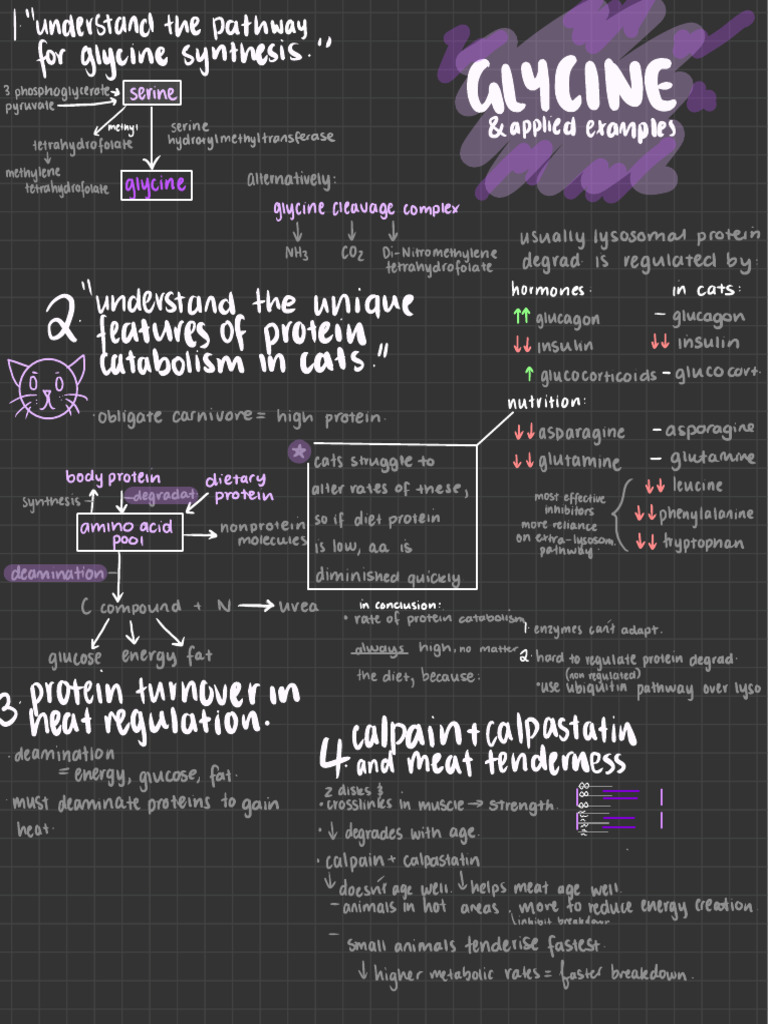 GLYCINE
& applied examples
1 "understand the pathway
for glycine synthesis."
3 phosphoglycerate
pyruvate
serine
methyl
tetrahydrofolate
methylene
tetrahydrofolate
serine
hydroxylmethyltransferase
glycine
alternatively:
glycine cleavage complex
NH3
CO2
Di-Nitromethylene
tetrahydrofolate
2. "understand the unique
features of protein
catabolism in cats."
· obligate carnivore = high protein.
body protein
dietary
protein
synthesis
degradat
amino acid
pool
nonprotein
molecules
deamination
C compound + N → urea
glucose energy fat
cats struggle to
alter rates of these,
so if diet protein
is low, aa is
diminished quickly
usually lysosomal protein
degrad. is regulated by:
hormones:
↑↑ glucagon
↓↓ insulin
↑ glucocorticoids
in cats:
– glucagon
↓↓ insulin
– glucocort.
nutrition:
↓↓ asparagine
↓↓ glutamine
– asparagine
– glutamine
most effective
inhibitors
more reliance
on extra-lysosom.
pathway.
↓↓ leucine
↓↓ phenylalanine
↓↓ tryptophan
in conclusion:
· rate of protein catabolism
always high, no matter
the diet, because:
1. enzymes can't adapt.
2. hard to regulate protein degrad.
(non regulated)
· use ubiquitin pathway over lyso
3. protein turnover in
heat regulation.
· deamination
= energy, glucose, fat.
· must deaminate proteins to gain
heat.
4. calpain + calpastatin
and meat tenderness
2 disks &
· crosslinks in muscle → strength.
· ↓ degrades with age.
· calpain + calpastatin
↓ doesn't age well. ↓ helps meat age well.
– animals in hot areas, more to reduce energy creation
inhibit breakdown
– small animals tenderise fastest.
↓ higher metabolic rates = faster breakdown.